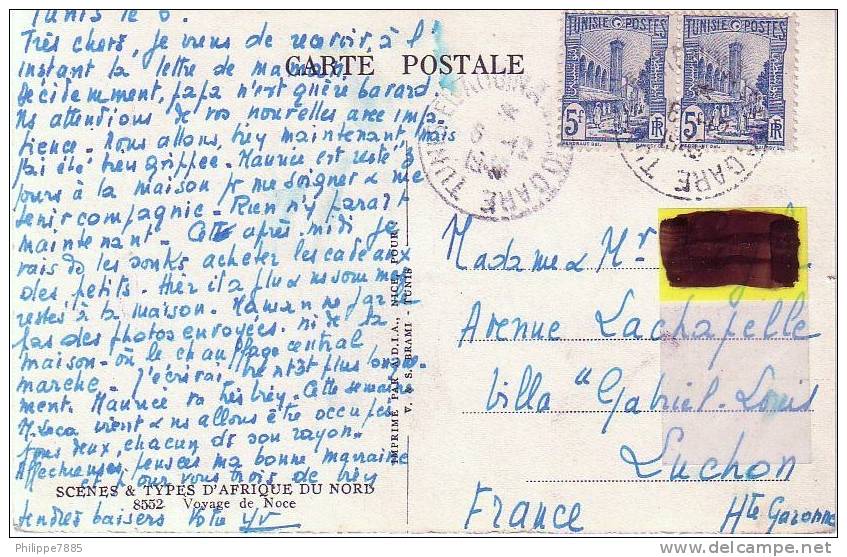 Tunis le 6.
Très chers, je viens de recevoir, à l'
instant la lettre de maman.
Décidemment, papa n'est guère bavard.
Ns attentions de vos nouvelles avec impa-
tience. Nous allons, bien maintenant, mais
j'ai été très grippée. Maurice est resté
jours à la maison pr me soigner & me
tenir compagnie. Rien n'y paraît
maintenant. Cette après midi je
vais ds les souks acheter les cadeaux
des petits. Hier il a plu & ns sommes
restés à la maison. Maman ne parle
pas des photos envoyées. ni de la
maison - où le chauffage central
marche. J'écrirai bientôt plus longue-
ment. Maurice va très bien. Cette semaine
M. Loca vient & ns allons être occupés
tous deux, chacun ds son rayon.
Affectueuses pensées ma bonne marraine
et pour vous trois de
tendres baisers Votre Yv
SCÈNES & TYPES D'AFRIQUE DU NORD
8552 Voyage de Noce
CARTE POSTALE
IMPRIMÉ PAR A.D.I.A., NICE, POUR
V. & S. BRAMI - TUNIS
TUNISIE POSTES
5F
RF
TUNISIE POSTES
5F
RF
TUNIS
GARE
Madame & Mr
Avenue Lachapelle
Villa "Gabriel-Louis
Luchon
France Hte Garonne
Philippe7885
www.delcampe.net